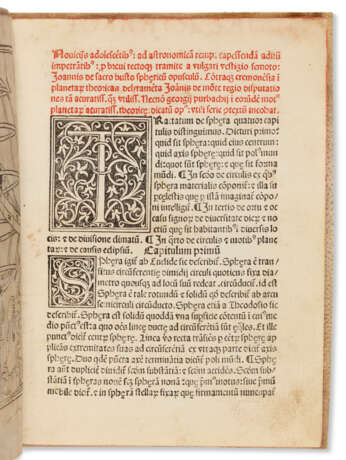 Nouicijs adolescẽtibꝰ: ad astronomicã remp. capessendã aditũ
impetrãtibꝰ: p breui rectoqꝫ tramite a vulgari vestigio semoto:
Joannis de sacro busto sphęricũ opusculũ. Cõtraqꝫ cremonẽsia ĩ
planetaꝝ theoricas delyramẽta Joãnis de mõte regio disputatio-
nes tã acuratiss. Necnõ georgij purbachij: ĩ eorũdẽ motꝰ
planetaꝝ acuratiss. theoricę: dicatũ opꝰ: vtili serie ptextũ incohat.
TRactatum de sphęra quatuor capi
tulis distinguimus. Dicturi primo
quid sit sphęra: quid eius centrum:
quid axis sphęrę: quid sit polꝰ mun
di: quot sint sphęrę: ⁊ que sit forma
mũdi. ¶ In scďo de circulis ex qbꝰ
sphęra materialis cõponit̃: ⁊ illa
ymaginat̃ cõpo
ni intelligit̃. ¶ In tertio de ortu ⁊ oc
casu signoꝝ: de diuersitate dieꝝ ⁊ no
ctiũ: que sit habitantibꝰ diuersis lo
cis: ⁊ de diuisione climatũ. ¶ In q̃rto de circulis ⁊ motibꝰ plane
taꝝ: ⁊ de causis eclipsiũ. Capitulum primũ
SPhęra igit̃ ab Euclide sic describit̃. Sphęra ẽ trans
itus circũferentię dimidij circuli quotiens fixa dia
metro quousqꝫ ad locũ suũ redeat circũducit̃. id est
Sphęra ẽ tale rotundũ ⁊ solidũ qď describit̃ ab arcu
semicirculi circũducto. Sphęra ꝟo a Theodosio sic
describit̃. Sphęra ẽ solidũ quoddã vna supficie cõtentũ ĩ cuiꝰ me
dio pũctꝰ ẽ: a quo oẽs linee ductę ad circũferentiã sũt ęq̃les. Et ille
punctꝰ dicit̃ centrũ sphęrę. Linea ꝟo recta trãsiẽs p centrũ sphęrę
applicãs extremitates suas ad circũferentiã ex vtraqꝫ parte dicit̃
axis sphęrę. Duo qdẽ pũcta axẽ terminãtia dicunt̃ poli mũdi. ¶ Sphęra
aũt dupliciť diuidit̃: scďm substãtiã: ⁊ scďm accidens. Scďm sub-
stãtiã ĩ sphęras nouẽ
mobile dicit̃: ⁊ in sphęrã stellaꝝ fixaꝝ que firmamentũ nuncupat̃